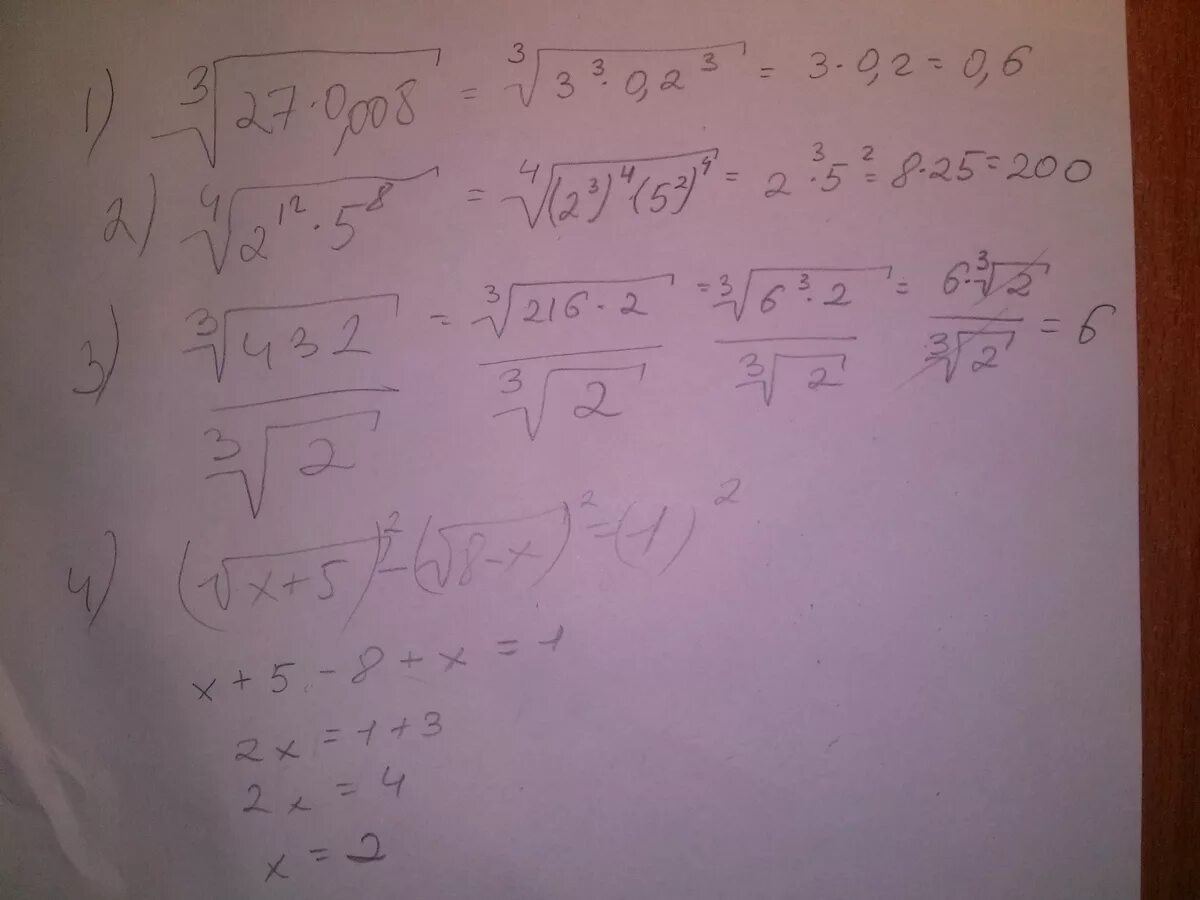 1) ∛(27·0,008) = ∛(3³·0,2³) = 3·0,2 = 0,6
2) ∜(2¹²·5⁸) = ∜((2³)⁴(5²)⁴) = 2³·5² = 8·25 = 200
3) ∛432 / ∛2 = ∛(216·2) / ∛2 = ∛(6³·2) / ∛2 = 6·∛2 / ∛2 = 6
4) (√(x+5))² - (√(8-x))² = (1)²
x + 5 - 8 + x = 1
2x = 1 + 3
2x = 4
x = 2